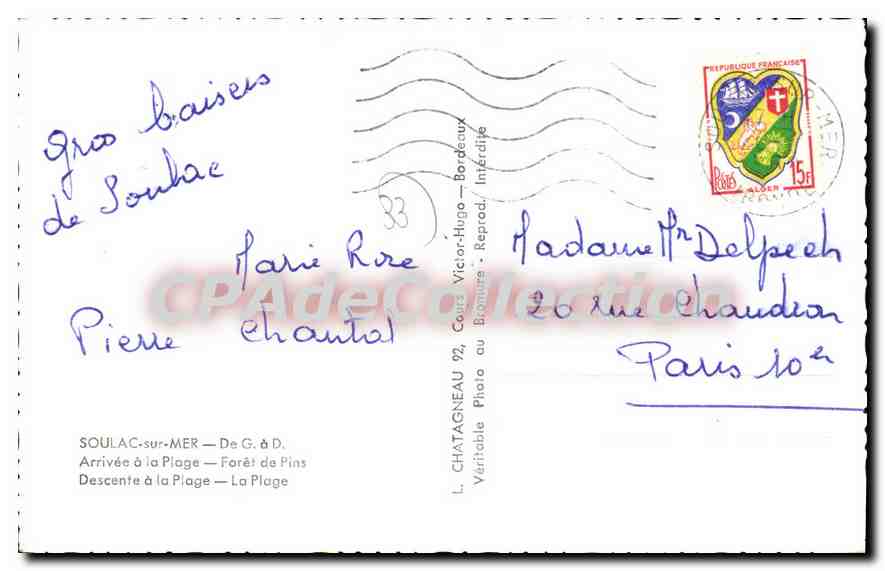 gros baisers
de Soulac
Marie Rose
Pierre Chantal
SOULAC-sur-MER — De G. à D.
Arrivée à la Plage — Forêt de Pins
Descente à la Plage — La Plage
33
L. CHATAGNEAU 92, Cours Victor-Hugo — Bordeaux
Véritable Photo au Bromure - Reprod. Interdite
REPUBLIQUE FRANÇAISE
POSTES
15F
ALGER
-MER
Madame Mr Delpech
20 rue Chaudron
Paris 10er
CPAdeCollection